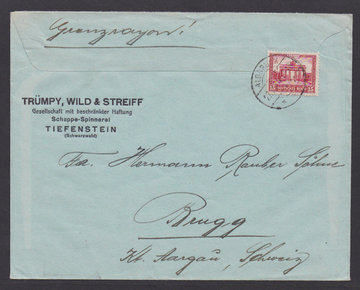 Grenzrayon!
TRÜMPY, WILD & STREIFF
Gesellschaft mit beschränkter Haftung
Schappe-Spinnerei
TIEFENSTEIN
(Schwarzwald)
Fa. Hermann Rauber Söhne
Brugg
Kt. Aargau, Schweiz
15 15